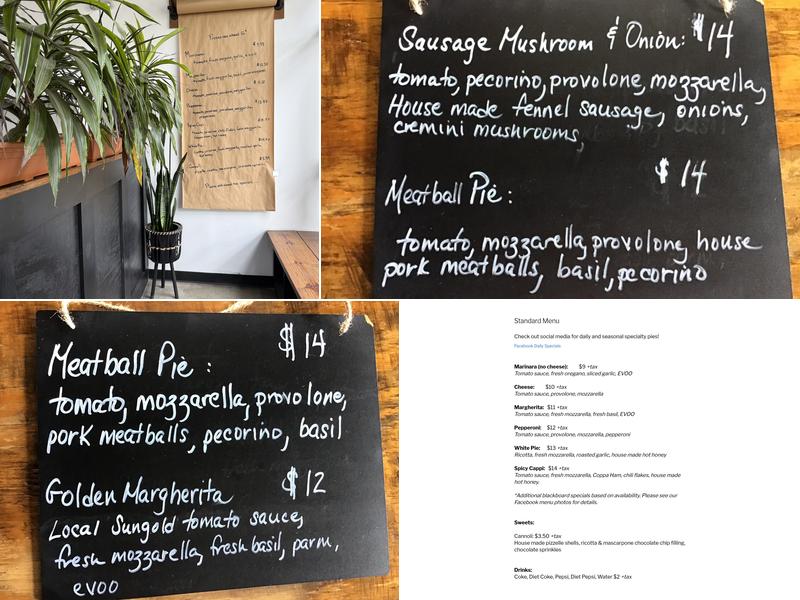 Sausage Mushroom & Onion: $14
tomato, pecorino, provolone, mozzarella,
House made fennel sausage, onions,
cremini mushrooms,
$14
Meatball Pie:
tomato, mozzarella, provolone, house
pork meatballs, basil, pecorino
$14
Meatball Pie :
tomato, mozzarella, provolone,
pork meatballs, pecorino, basil
Golden Margherita $12
Local Sungold tomato sauce,
fresh mozzarella, fresh basil, parm,
evoo
Standard Menu
Check out social media for daily and seasonal specialty pies!
Facebook Daily Specials
Marinara (no cheese): $9 +tax
Tomato sauce, fresh oregano, sliced garlic, EVOO
Cheese: $10 +tax
Tomato sauce, provolone, mozzarella
Margherita: $11 +tax
Tomato sauce, fresh mozzarella, fresh basil, EVOO
Pepperoni: $12 +tax
Tomato sauce, provolone, mozzarella, pepperoni
White Pie: $13 +tax
Ricotta, fresh mozzarella, roasted garlic, house made hot honey
Spicy Cappi: $14 +tax
Tomato sauce, fresh mozzarella, Coppa Ham, chili flakes, house made
hot honey.
*Additional blackboard specials based on availability. Please see our
Facebook menu photos for details.
Sweets:
Cannoli: $3.50 +tax
House made pizzelle shells, ricotta & mascarpone chocolate chip filling,
chocolate sprinkles
Drinks:
Coke, Diet Coke, Pepsi, Diet Pepsi, Water $2 +tax